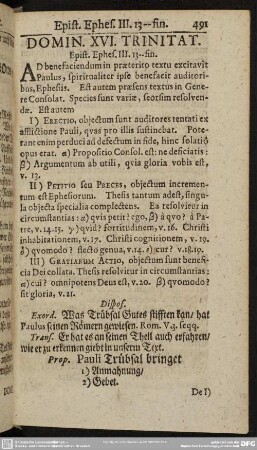 Epist. Ephes. III. 13--fin. 491
DOMIN. XVI. TRINITAT.
Epist. Ephes. III. 13--fin.
AD benefaciendum in præterito textu excitavit
Paulus, spiritualiter ipse benefacit auditori-
bus, Ephesiis. Est autem præsens textus in Gene-
re Consolat. Species sunt variæ, seorsim resolven-
dæ. Est autem
I) ERECTIO, objectum sunt auditores tentati ex
afflictione Pauli, qvas pro illis sustinebat. Pote-
rant enim perduci ad defectum in fide, hinc solatio
opus erat. α) Propositio Consol. est: ne deficiatis:
β) Argumentum ab utili, qvia gloria vobis est,
v. 13.
II) PETITIO seu PRECES, objectum incremen-
tum est Ephesiorum. Thesis tantum adest, singu-
la objecta specialia complectens. Ea resolvitur in
circumstantias: α) qvis petit? ego, β) à qvo? à Pa-
tre, v. 14. 15. γ) qvid? fortitudinem, v. 16. Christi
inhabitationem, v. 17. Christi cognitionem, v. 19.
δ) qvomodo? flecto genua, v. 14. ε) cur? v. 18. 19.
III) GRATIARUM ACTIO, objectum sunt benefi-
cia Dei collata. Thesis resolvitur in circumstantias;
α) cui? omnipotens Deus est, v. 20. β) qvomodo?
sit gloria, v. 21.
Dispos.
Exord. Was Trübsal Gutes stifften kan/ hat
Paulus seinen Römern gewiesen. Rom. V. 3. seqq.
Trans. Er hat es an seinen Theil auch erfahren/
wie er zu erkennen giebt in unserm Text.
Prop. Pauli Trübsal bringet
1) Anmahnung/
2) Gebet.
De I)